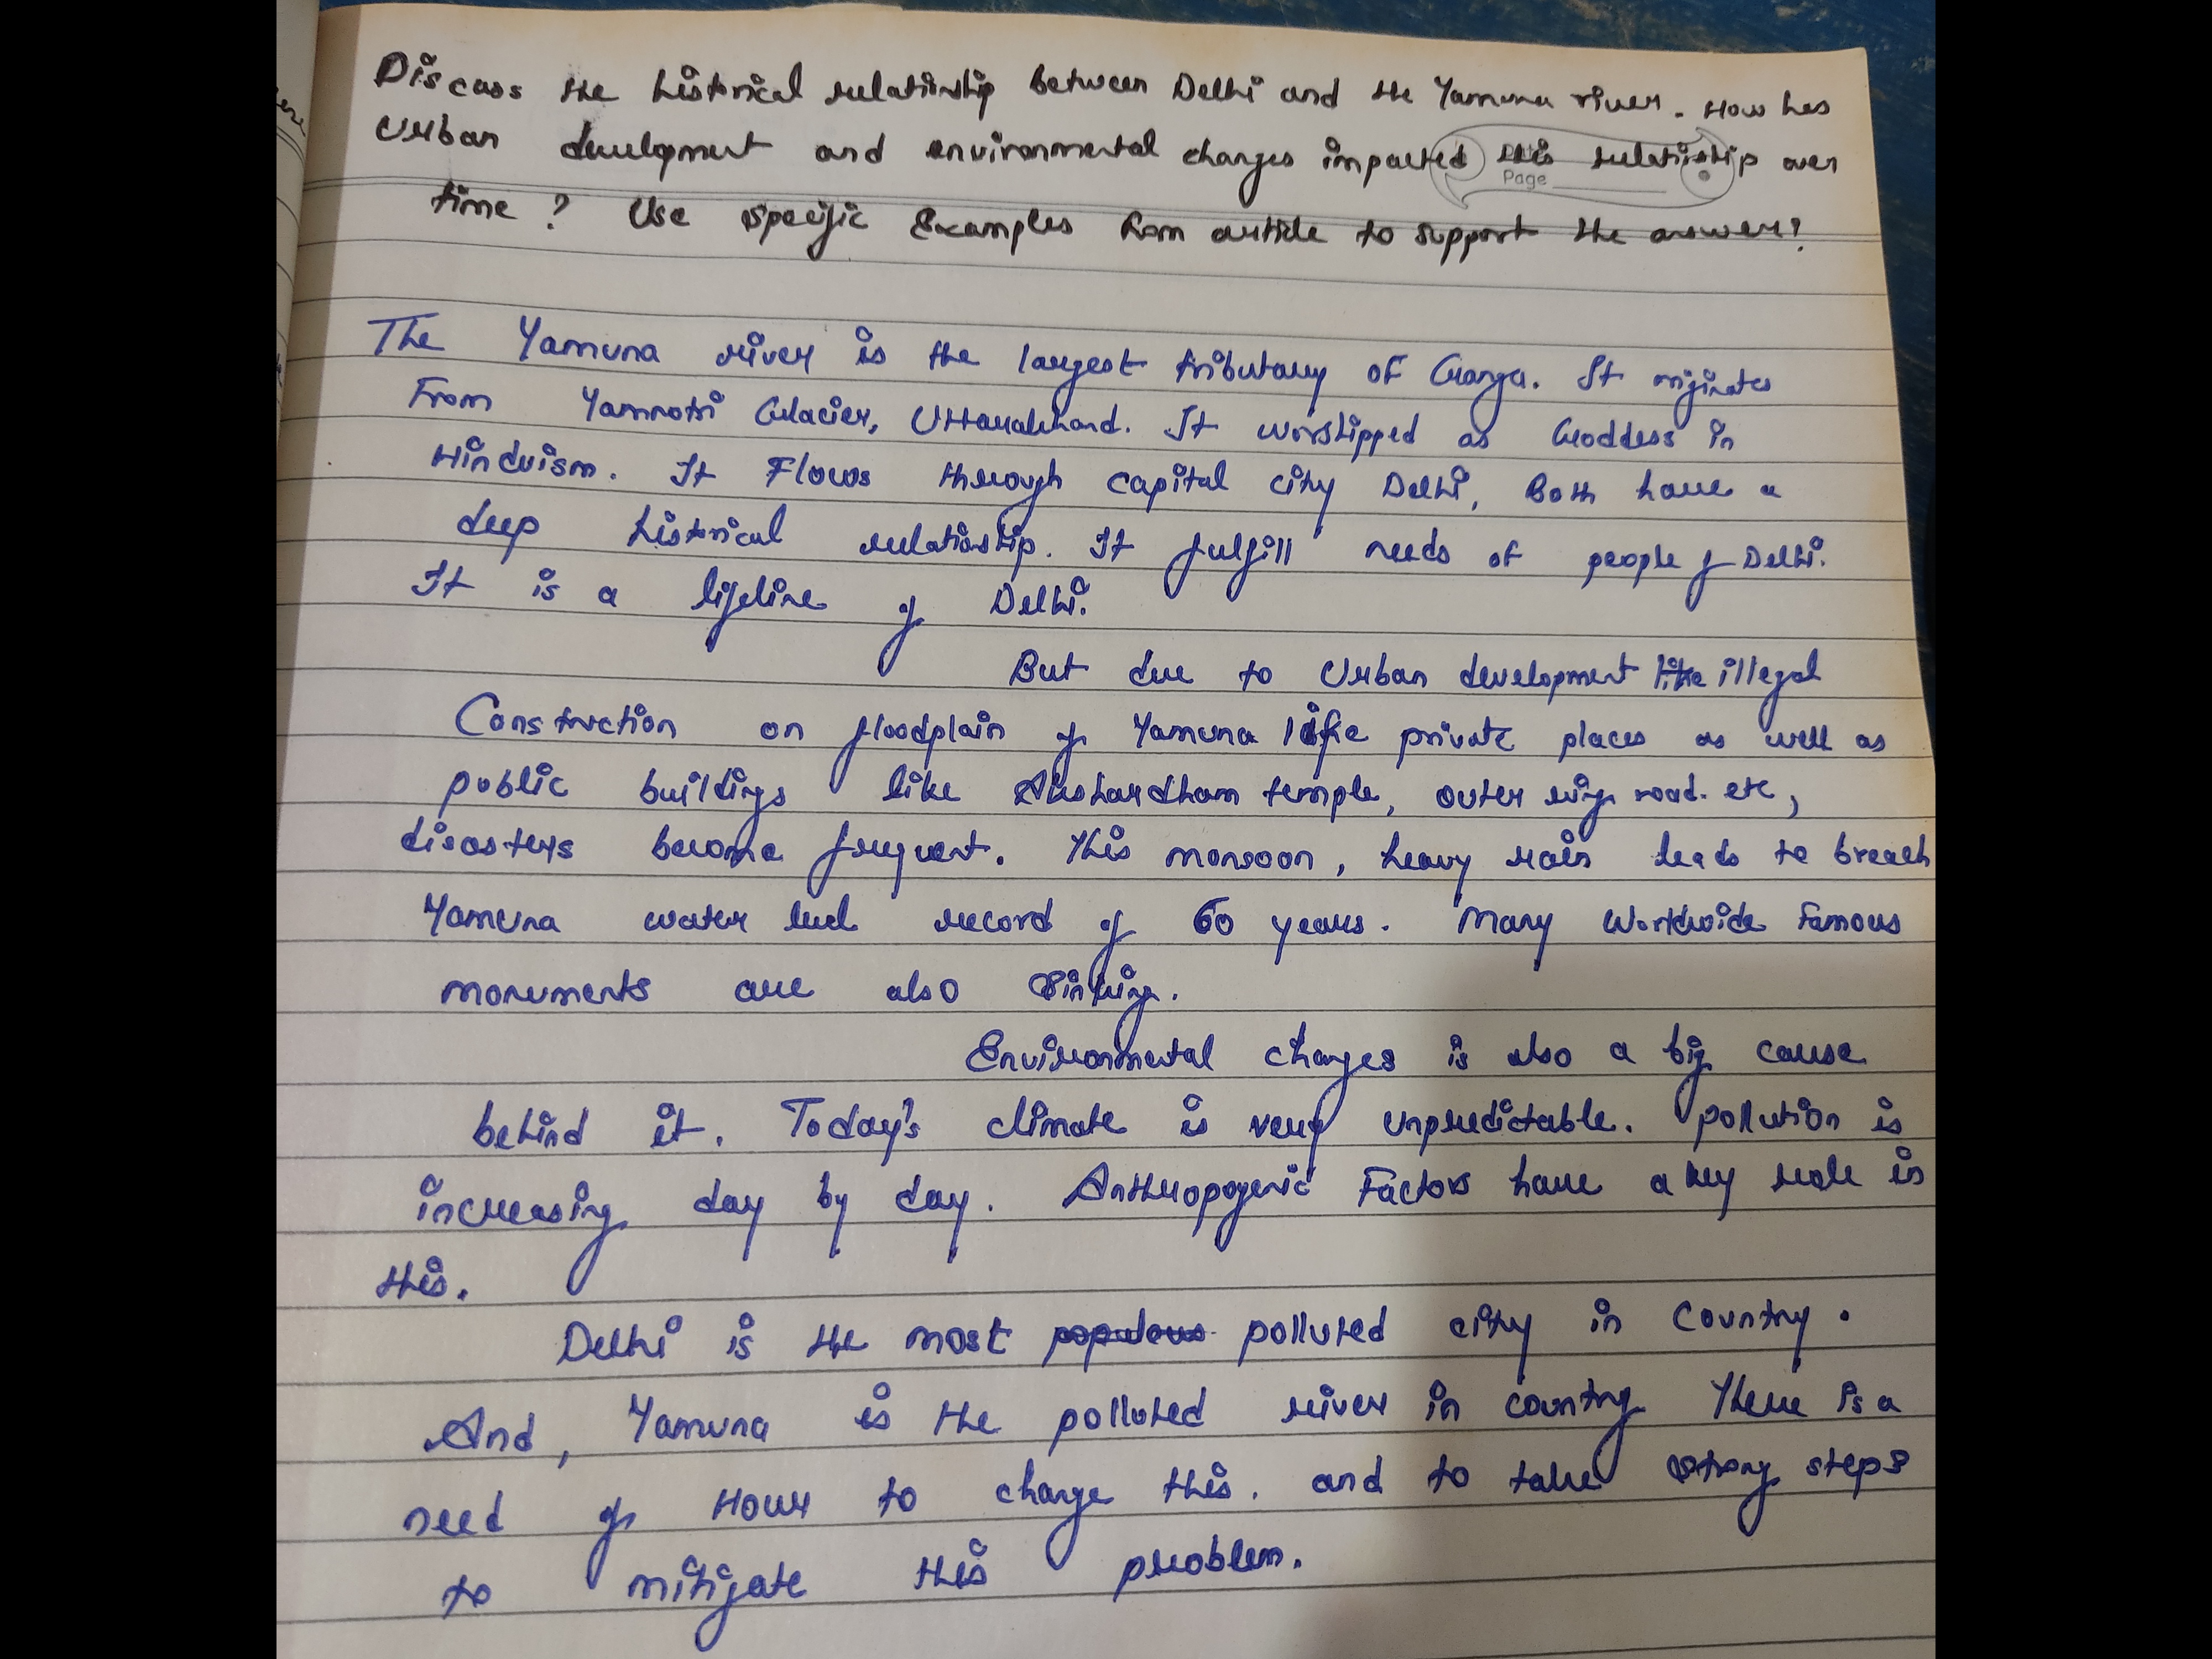 Discuss the historical relationship between Delhi and the Yamuna river. How has
Urban development and environmental changes impacted this relationship over
Page
time? Use specific Examples from article to support the answer?
The Yamuna river is the largest tributary of Ganga. It originates
From Yamnotri Glacier, Uttarakhand. It worshipped as Goddess in
Hinduism. It Flows through capital city Delhi, Both have a
deep historical relationship. It fulfill needs of people of Delhi.
It is a lifeline of Delhi.
But due to Urban development like illegal
Construction on floodplain of Yamuna like private places as well as
public buildings like Akshardham temple, outer ring road. etc,
disasters become frequent. This monsoon, heavy rain leads to breach
Yamuna water level record of 60 years. Many Worldwide Famous
monuments are also sinking.
Environmental changes is also a big cause
behind it. Today's climate is very unpredictable. Pollution is
increasing day by day. Anthropogenic Factors have a key role in
this.
Delhi is the most populous polluted city in Country.
And, Yamuna is the polluted river in country. There is a
need of Hour to change this. and to take strong steps
to mitigate this problem.